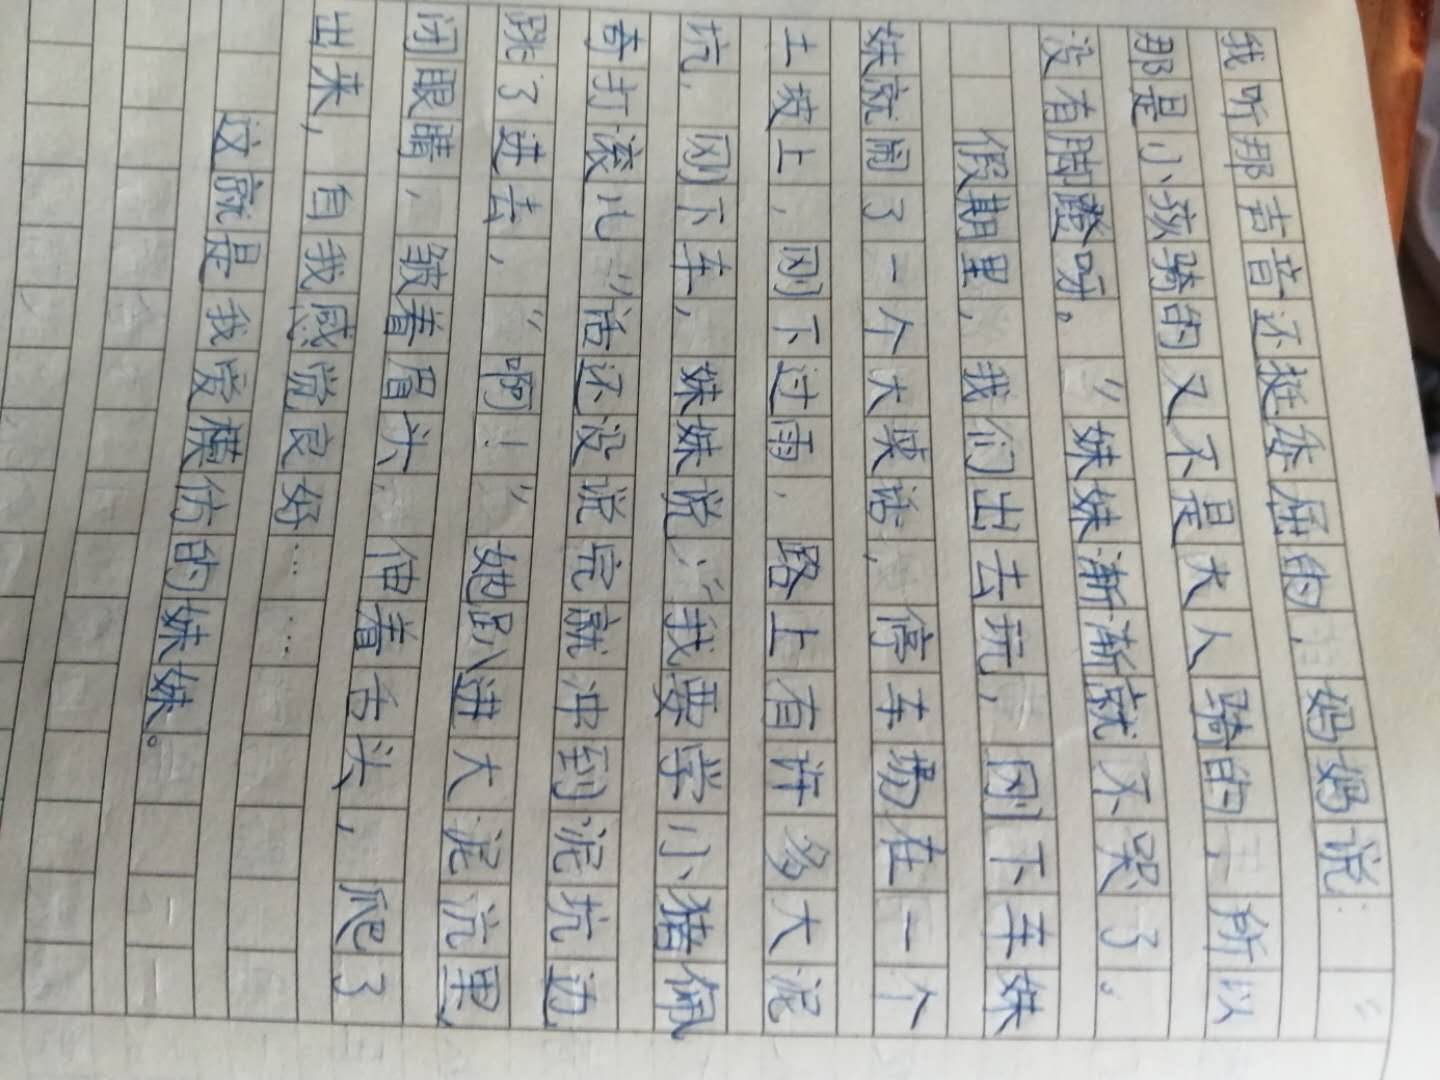 我听那声音还挺委屈的，妈妈说：“
那是小孩骑的又不是大人骑的，所以
没有脚蹬呀。”妹妹渐渐就不哭了。
假期里，我们出去玩，刚下车妹
妹就闹了一个大笑话，停车场在一个
土坡上，刚下过雨，路上有许多大泥
坑，刚下车，妹妹说：“我要学小猪佩
奇打滚儿“话还没说完就冲到泥坑边
跳了进去，“啊！”她趴进大泥坑里
闭眼睛，皱着眉头，伸着舌头，爬了
出来，自我感觉良好……
这就是我爱模仿的妹妹。